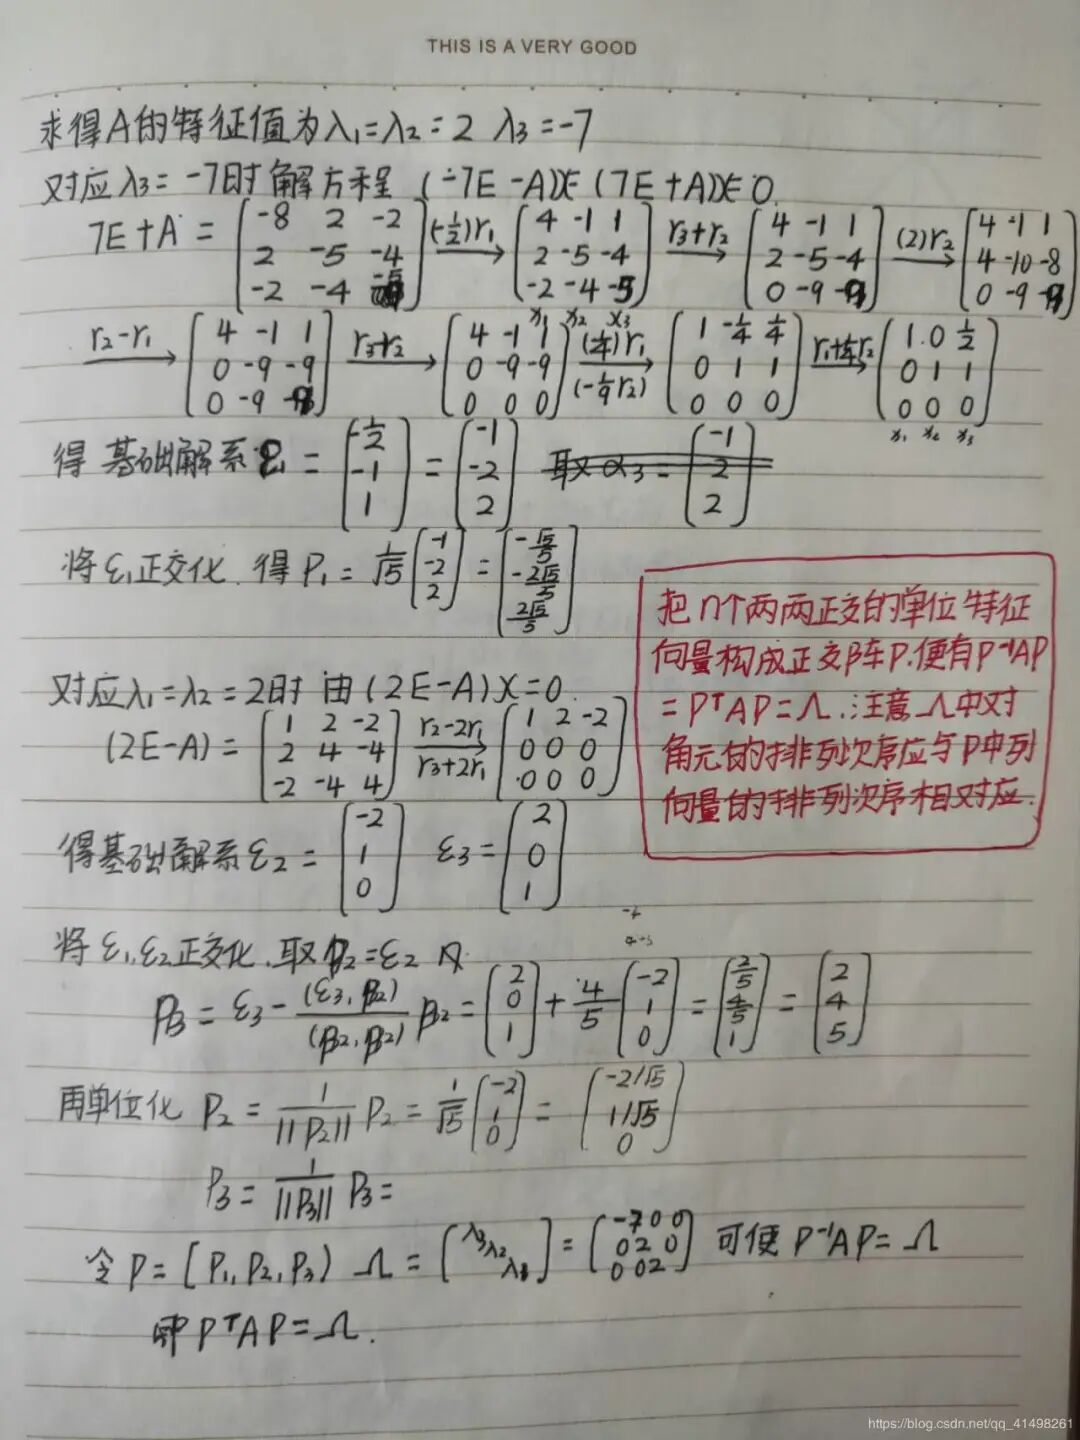 THIS IS A VERY GOOD
求得A的特征值为λ₁=λ₂=2 λ₃=-7
对应λ₃=-7时解方程 (-7E-A)X=(7E+A)X=0
7E+A = [-8 2 -2; 2 -5 -4; -2 -4 -5] (-½)r₁ → [4 -1 1; 2 -5 -4; -2 -4 -5] r₃+r₂ → [4 -1 1; 2 -5 -4; 0 -9 -9] (2)r₂ → [4 -1 1; 4 -10 -8; 0 -9 -9]
r₂-r₁ → [4 -1 1; 0 -9 -9; 0 -9 -9] r₃+r₂ → [4 -1 1; 0 -9 -9; 0 0 0] x₁ x₂ x₃ (¼)r₁ (-⅑r₂) → [1 -¼ ¼; 0 1 1; 0 0 0] r₁+¼r₂ → [1 0 ½; 0 1 1; 0 0 0] x₁ x₂ x₃
得 基础解系ε₁ = [-½; -1; 1] = [-1; -2; 2] 取α₃ = [-1; 2; 2]
将ε₁正交化. 得 P₁ = 1/√5 [-1; -2; 2] = [-√5/5; -2√5/5; 2√5/5]
把n个两两正交的单位特征
向量构成正交阵P.便有P⁻¹AP
=PᵀAP=Λ.注意Λ中对
角元的排列次序应与P中列
向量的排列次序相对应.
对应λ₁=λ₂=2时 由(2E-A)X=0.
(2E-A) = [1 2 -2; 2 4 -4; -2 -4 4] r₂-2r₁ r₃+2r₁ → [1 2 -2; 0 0 0; 0 0 0]
得基础解系ε₂ = [-2; 1; 0] ε₃ = [2; 0; 1]
将ε₁,ε₂正交化.取β₂=ε₂
β₃ = ε₃ - (ε₃,β₂)/(β₂,β₂) β₂ = [2; 0; 1] + 4/5 [-2; 1; 0] = [2/5; 4/5; 1] = [2; 4; 5]
再单位化 P₂ = 1/||P₂|| P₂ = 1/√5 [-2; 1; 0] = [-2/√5; 1/√5; 0]
P₃ = 1/||P₃|| P₃ =
令P=[P₁,P₂,P₃) Λ = [λ₃ λ₂ λ₁] = [-7 0 0; 0 2 0; 0 0 2] 可使P⁻¹AP=Λ
即PᵀAP=Λ.
https://blog.csdn.net/qq_41498261